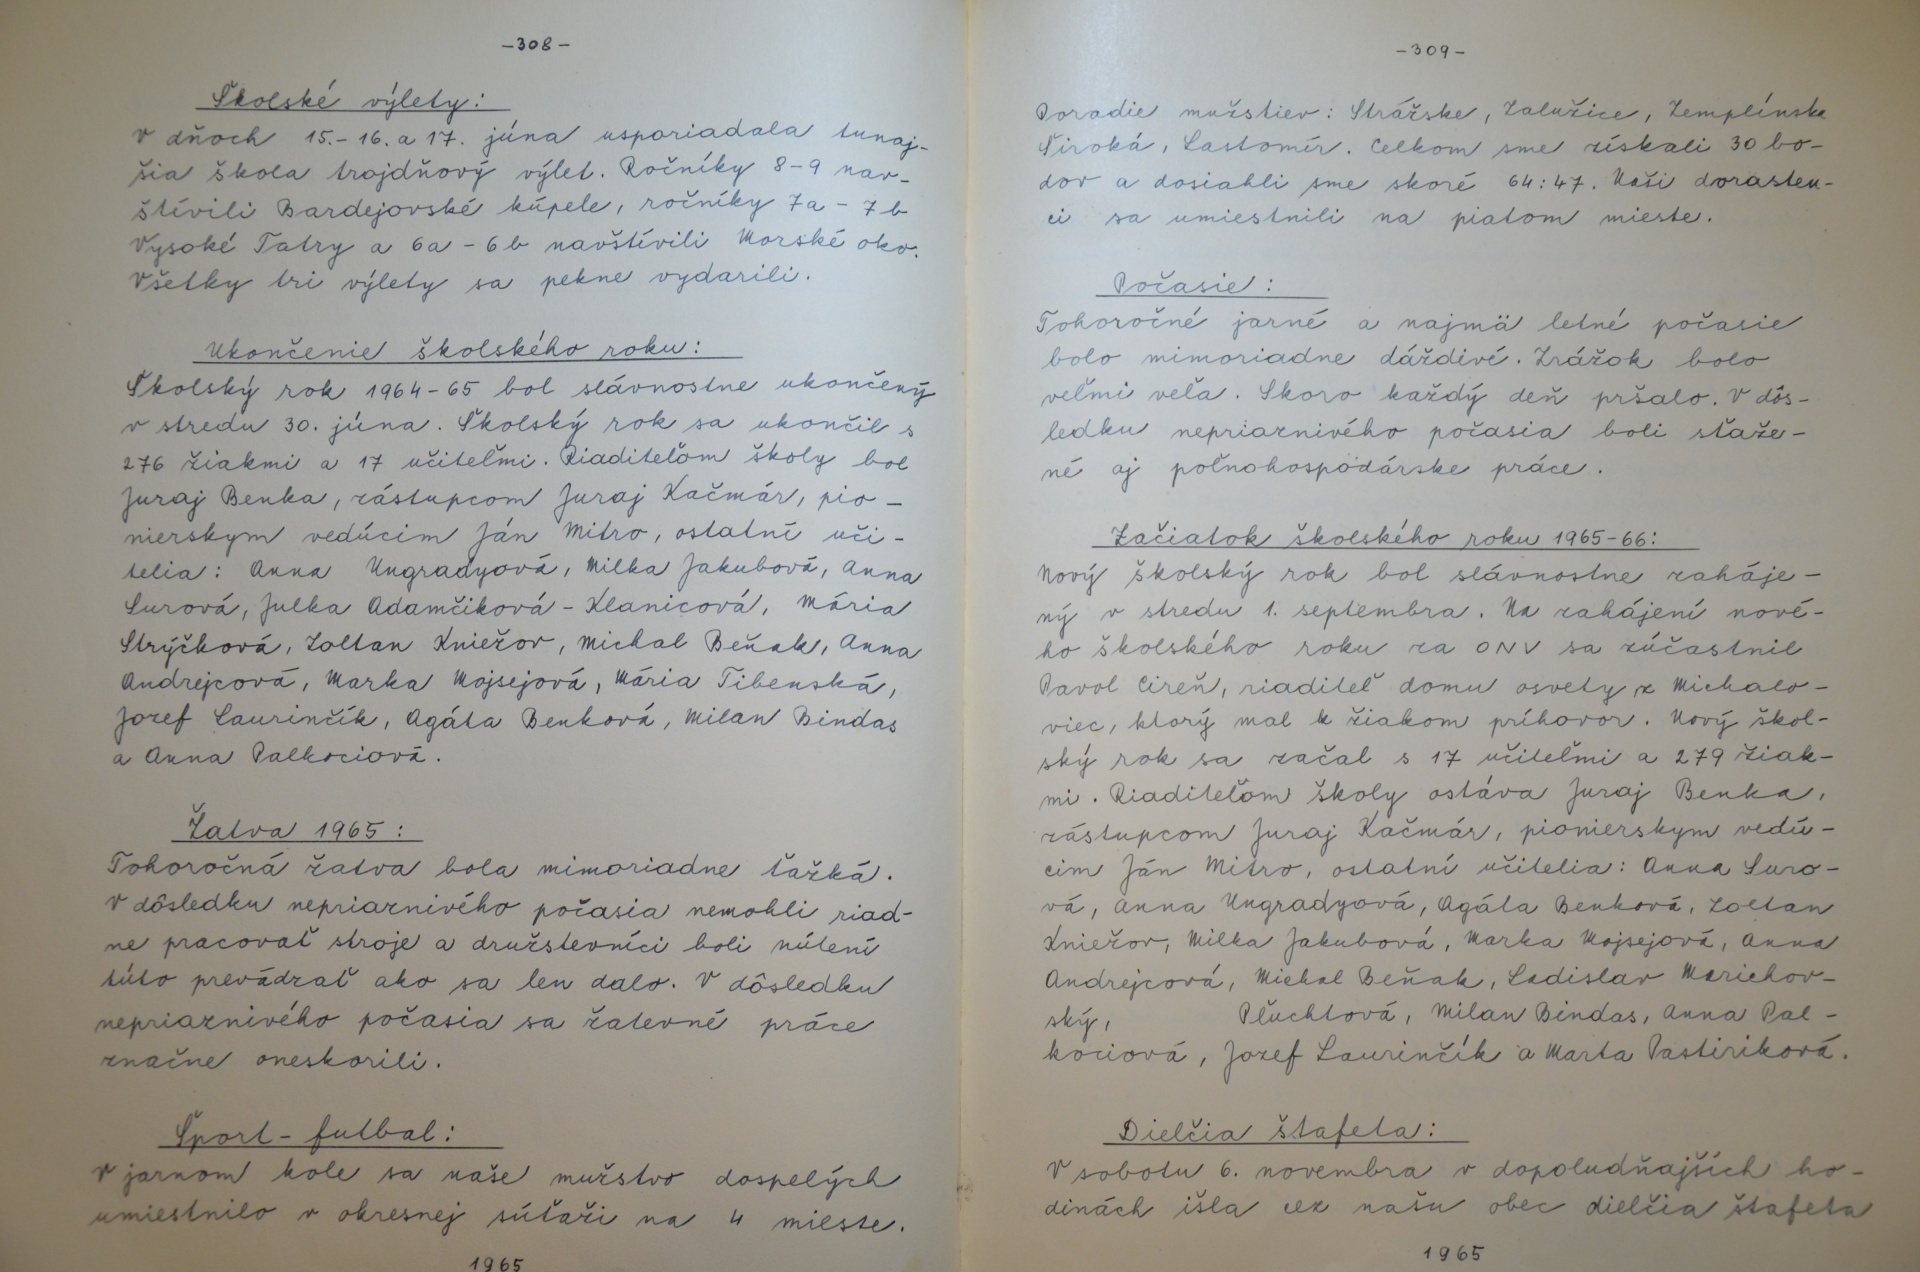 -308-
Školské výlety:
V dňoch 15.-16. a 17. júna usporiadala tunaj-
šia škola trojdňový výlet. Ročníky 8-9 nav-
štívili Bardejovské kúpele, ročníky 7a - 7b
Vysoké Tatry a 6a - 6b navštívili Morské oko.
Všetky tri výlety sa pekne vydarili.
Ukončenie školského roku:
Školský rok 1964-65 bol slávnostne ukončený
v stredu 30. júna. Školský rok sa ukončil s
276 žiakmi a 17 učiteľmi. Riaditeľom školy bol
Juraj Benka, zástupcom Juraj Kačmár, pio-
nierskym vedúcim Ján Mitro, ostatní uči-
telia: Anna Ungradyová, Milka Jakubová, Anna
Surová, Julka Adamčiková - Klanicová, Mária
Strýčková, Zoltan Kniežov, Michal Beňak, Anna
Andrejcová, Marka Mojsejová, Mária Tibenská,
Jozef Laurinčík, Agáta Benková, Milan Bindas
a Anna Palkociová.
Žatva 1965:
Tohoročná žatva bola mimoriadne ťažká.
V dôsledku nepriaznivého počasia nemohli riad-
ne pracovať stroje a družstevníci boli nútení
túto prevádzať ako sa len dalo. V dôsledku
nepriaznivého počasia sa žatevné práce
značne oneskorili.
Šport - futbal:
V jarnom kole sa naše mužstvo dospelých
umiestnilo v okresnej súťaži na 4 mieste.
1965
-309-
Poradie mužstiev: Strážske, Zalužice, Zemplínska
Široká, Lastomír. Celkom sme získali 30 bo-
dov a dosiahli sme skoré 64:47. Naši dorasten-
ci sa umiestnili na piatom mieste.
Počasie:
Tohoročné jarné a najmä letné počasie
bolo mimoriadne dáždivé. Zrážok bolo
veľmi veľa. Skoro každý deň pršalo. V dôs-
ledku nepriaznivého počasia boli sťaže-
né aj poľnohospodárske práce.
Začiatok školského roku 1965-66:
Nový školský rok bol slávnostne zaháje-
ný v stredu 1. septembra. Na zahájení nové-
ho školského roku za ONV sa zúčastnil
Pavol Cireň, riaditeľ domu osvety z Michalo-
viec, ktorý mal k žiakom príhovor. Nový škol-
ský rok sa začal s 17 učiteľmi a 279 žiak-
mi. Riaditeľom školy ostáva Juraj Benka,
zástupcom Juraj Kačmár, pionierskym vedú-
cim Ján Mitro, ostatní učitelia: Anna Suro-
vá, Anna Ungradyová, Agáta Benková, Zoltan
Kniežov, Milka Jakubová, Marka Mojsejová, Anna
Andrejcová, Michal Beňak, Ladislav Marichov-
ský, Pľuchtová, Milan Bindas, Anna Pal-
kociová, Jozef Laurinčík a Marta Pastiriková.
Dielčia štafeta:
V sobotu 6. novembra v dopoludňajších ho-
dinách išla cez našu obec dielčia štafeta
1965